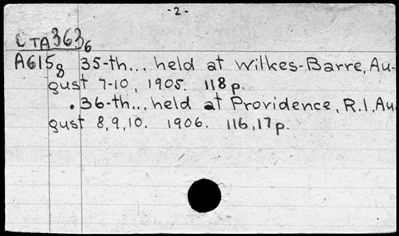 -2-
CTA3636
A6158 35-th... held at Wilkes-Barre, Au-
gust 7-10, 1905. 118p.
. 36-th... held at Providence, R.I, Au
gust 8,9,10. 1906. 116,17p.